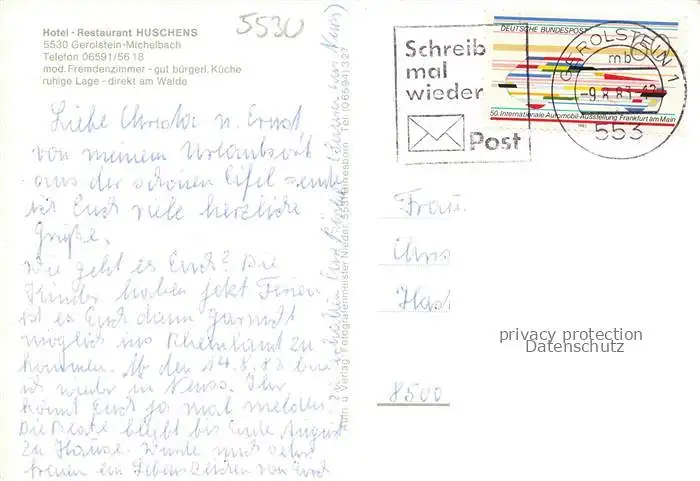 Hotel - Restaurant HUSCHENS
5530 Gerolstein-Michelbach
Telefon 06591/5618
mod. Fremdenzimmer - gut bürgerl. Küche
ruhige Lage - direkt am Walde
5530
Liebe Christa u. Ernst,
von meinem Urlaubsort
aus der schönen Eifel sende
ich Euch viele herzliche
Grüße.
Wie geht es Euch? Die
Kinder haben jetzt Ferien
ist es Euch dann garnicht
möglich ins Rheinland zu
kommen. Ab den 14.8.83 bin
ich wieder in Neuss. Ihr
könnt Euch ja mal melden.
Die Beate bleibt bis Ende August
zu Hause. Würde mich sehr
freuen ein Lebenszeichen von Euch
zu erhalten
Neuss)
Aufn. u. Verlag: Fotografenmeister Nieder, 5531 Birresborn, Tel. (06594) 327
Schreib
mal
wieder
Post
DEUTSCHE BUNDESPOST
50. Internationale Automobil-Ausstellung Frankfurt am Main
GEROLSTEIN 1
mb
-9.8.83
553
Frau
Chris
Hast
8500
privacy protection
Datenschutz